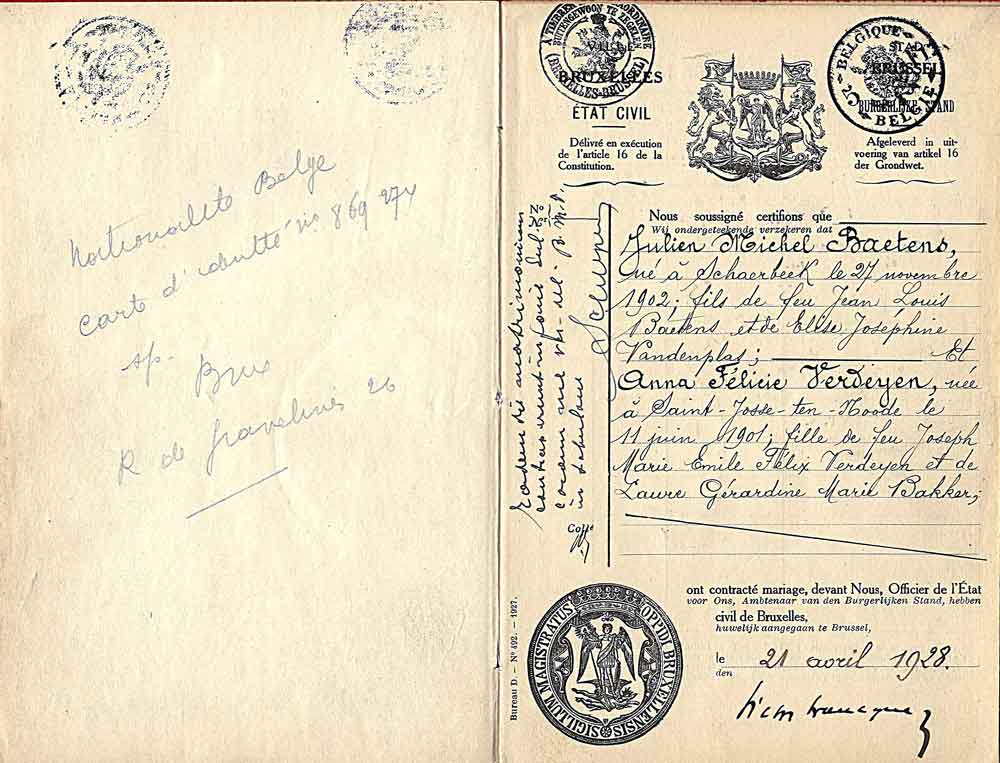 Nationalité Belge
Carte d'identité n° 869 274
Brux
R de Gravelines 26
A TIMBRER EXTRAORDINAIRE
BUITENGEWOON TE ZEGELEN
(BRUXELLES-BRUSSEL)
VILLE
BRUXELLES
ÉTAT CIVIL
Délivré en exécution
de l'article 16 de la
Constitution.
BELGIQUE
BELGIË
STAD
BRUSSEL
BURGERLIJKE STAND
Afgeleverd in uit-
voering van artikel 16
der Grondwet.
Nous soussigné certifions que
Wij ondergeteekende verzekeren dat
Julien Michel Baetens,
né à Schaerbeek le 27 novembre
1902; fils de feu Jean Louis
Baetens et de Elise Joséphine
Vandenplas; Et
Anna Félicie Verdeyen, née
à Saint-Josse-ten-Noode le
11 juin 1901; fille de feu Joseph
Marie Emile Félix Verdeyen et de
Laure Gérardine Marie Bakker;
Eadem die matrimonium
in
Coll
ont contracté mariage, devant Nous, Officier de l'État
voor Ons, Ambtenaar van den Burgerlijken Stand, hebben
civil de Bruxelles,
huwelijk aangegaan te Brussel,
le 21 avril 1928.
den
SIGILLUM MAGISTRATUS OPPIDI BRUXELLENSIS
Bureau D. - N° 492. - 1927.